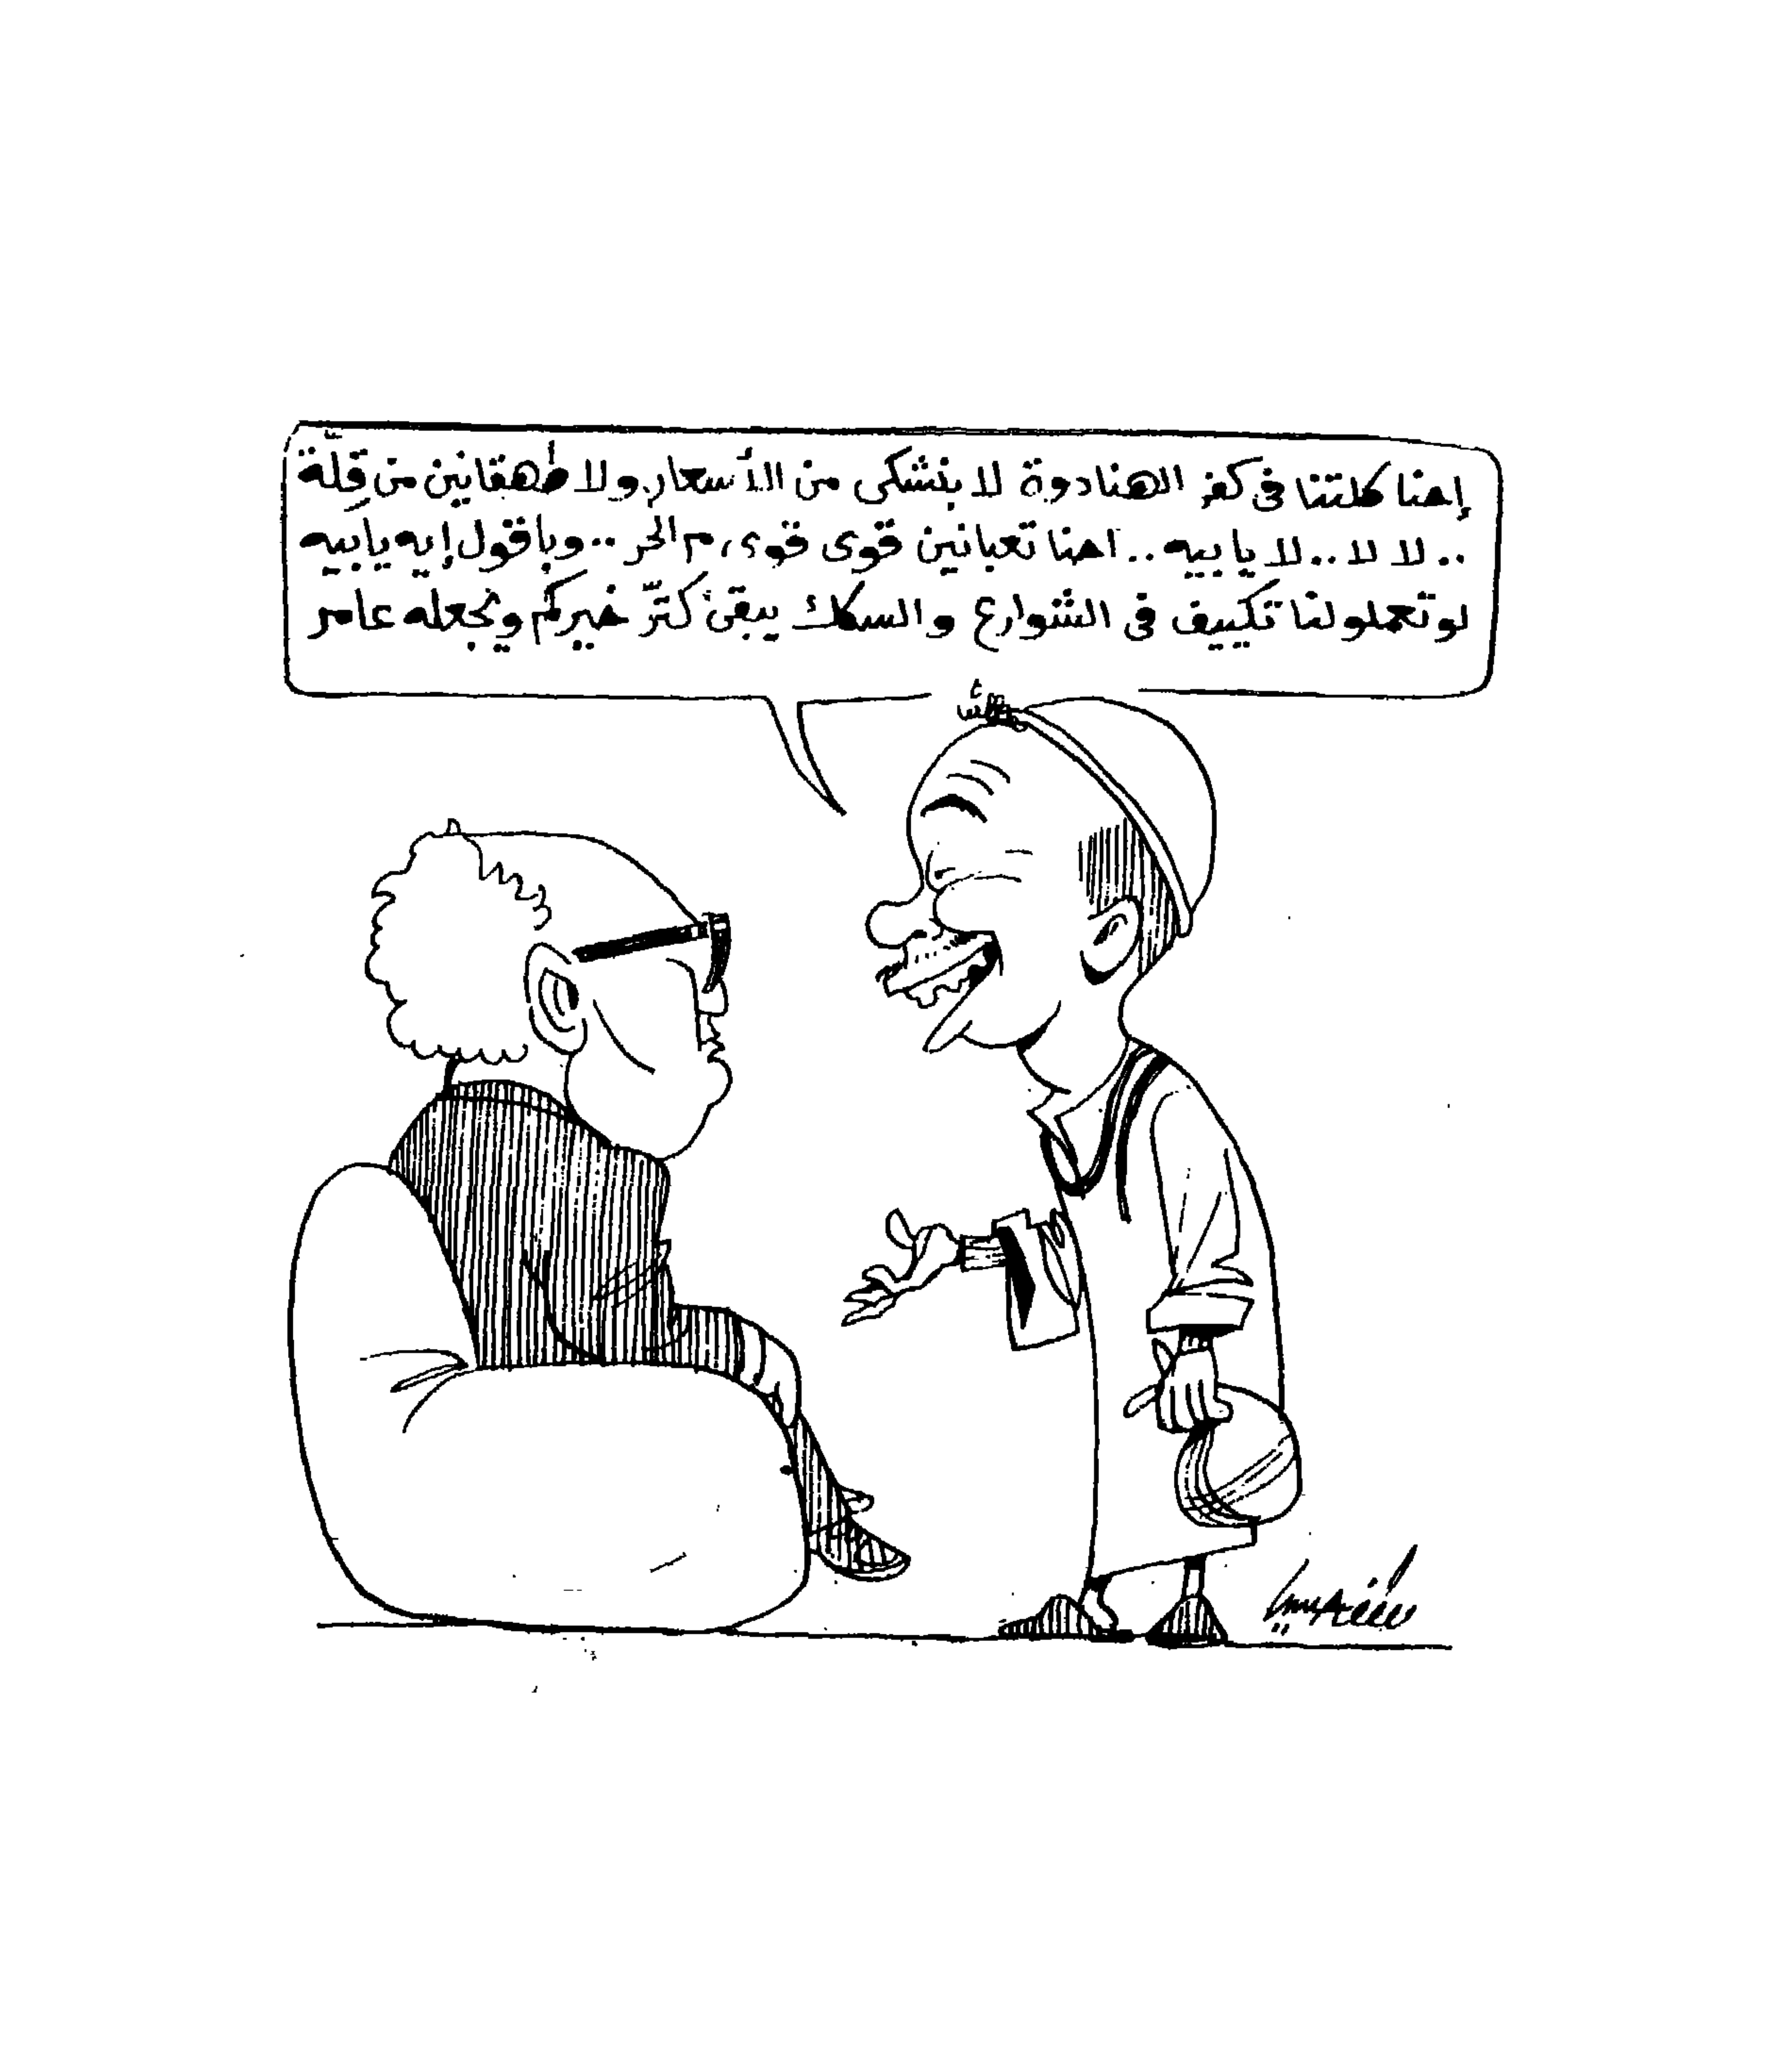 إحنا كلتنا فى كفر الهنادوة لا بنشكى من الأسعار ولا طهقانين من قِلّة
.. لا لا .. لا يا بيه .. احنا تعبانين قوى قوى م الحر .. وباقول إيه يا بيه
لو تعملولنا تكييف فى الشوارع والسكك يبقى كتّر خيركم ونجعله عامر